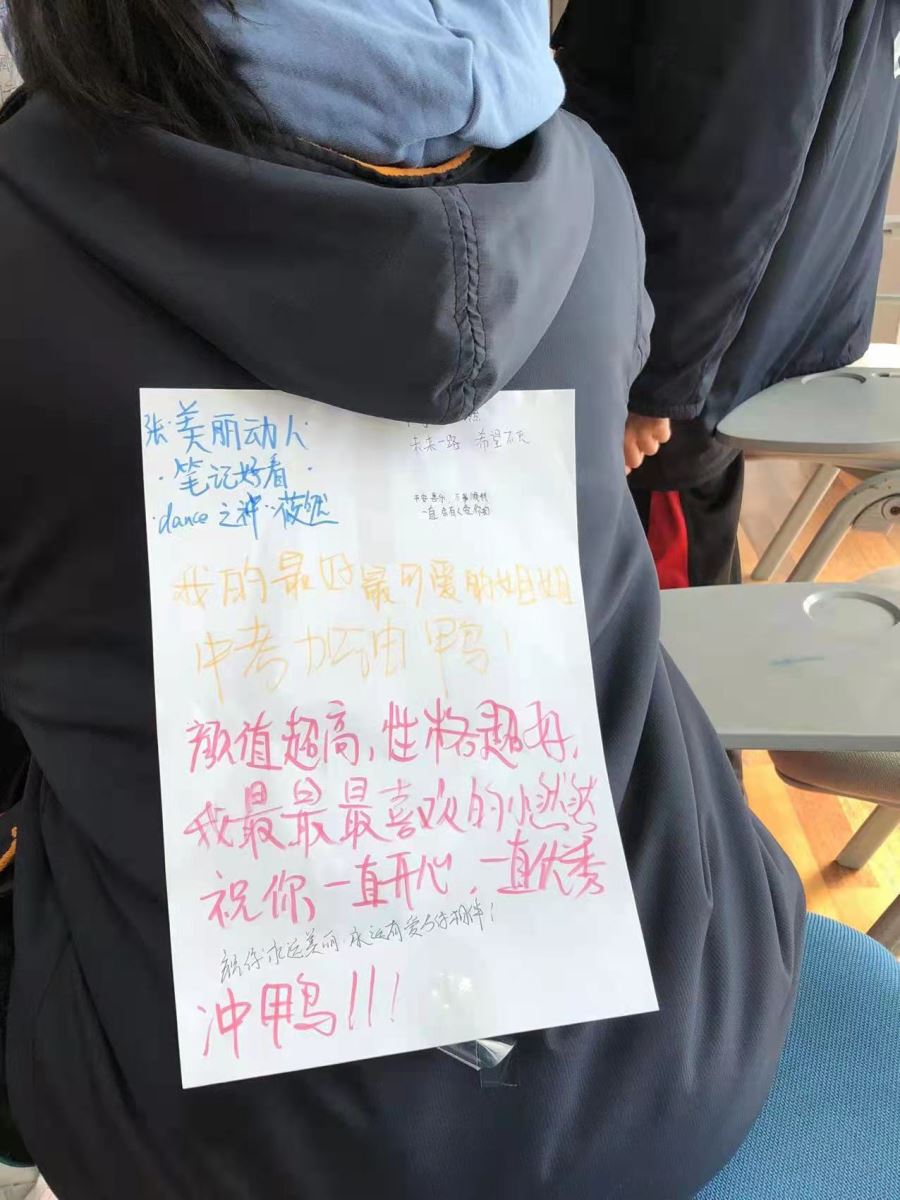 张·美丽动人
·笔记好看·
·dance 之神·筱然
未来一路 希望不灭
平安喜乐,万事顺利
一直会有人爱你的
我的最好最可爱的姐姐
中考加油鸭!
颜值超高,性格超好,
我最最最喜欢的小然然
祝你一直开心,一直优秀
祝你永远美丽 永远有爱与你相伴!
冲鸭!!!